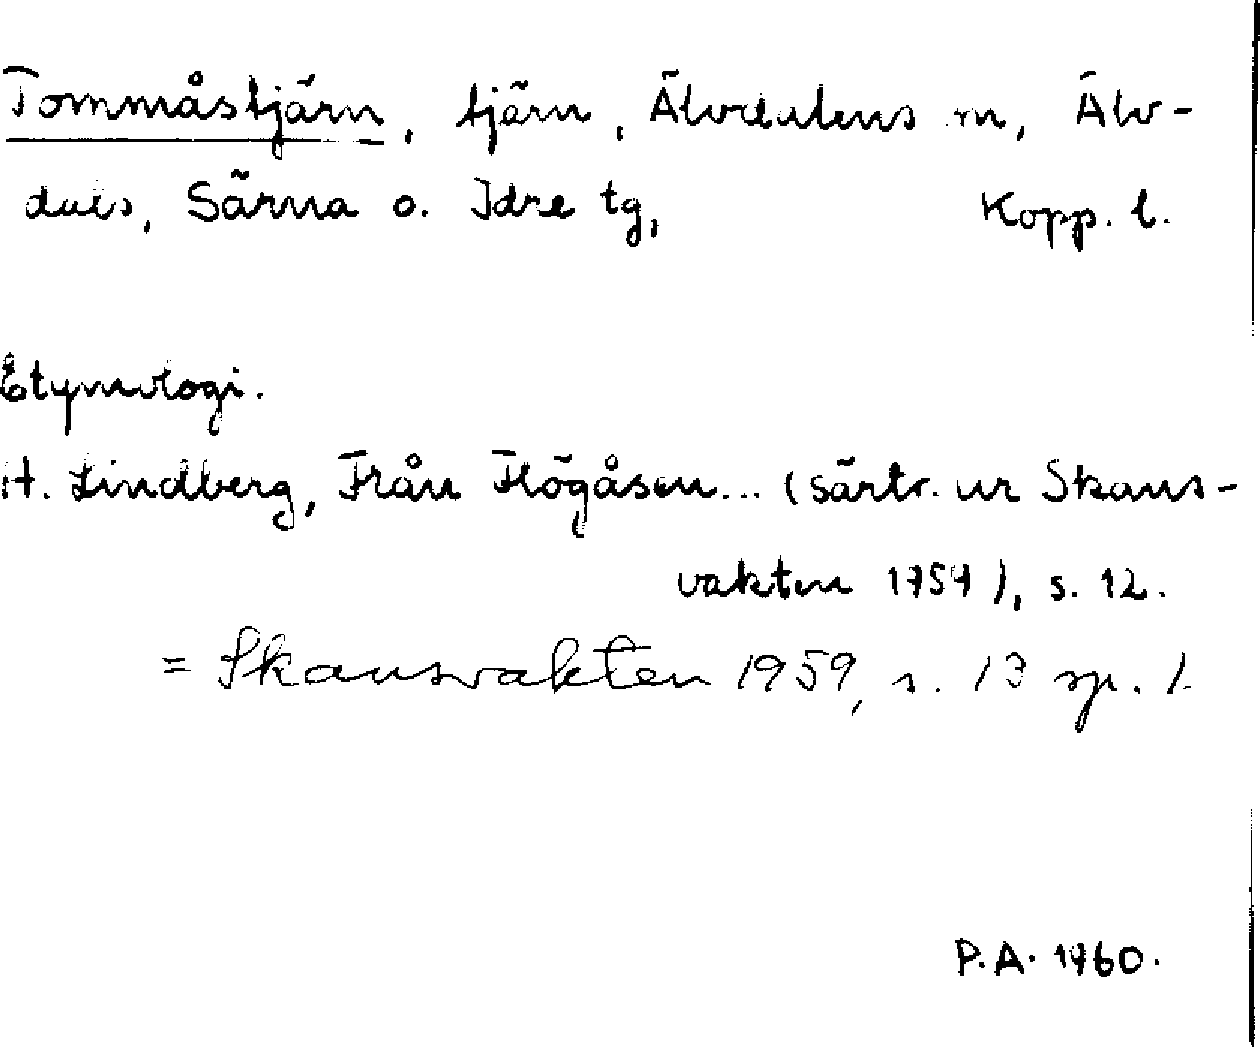 Tommåstjärn, tjärn, Älvdalens sn, Älv-
dals, Särna o. Idre tg, Kopp. l.
Etymologi.
H. Lindberg, Från Högåsen... (särtr. ur Skans-
vakten 1959), s. 12.
= Skansvakten 1959, s. 13 sp. 1.
P.A. 1960.